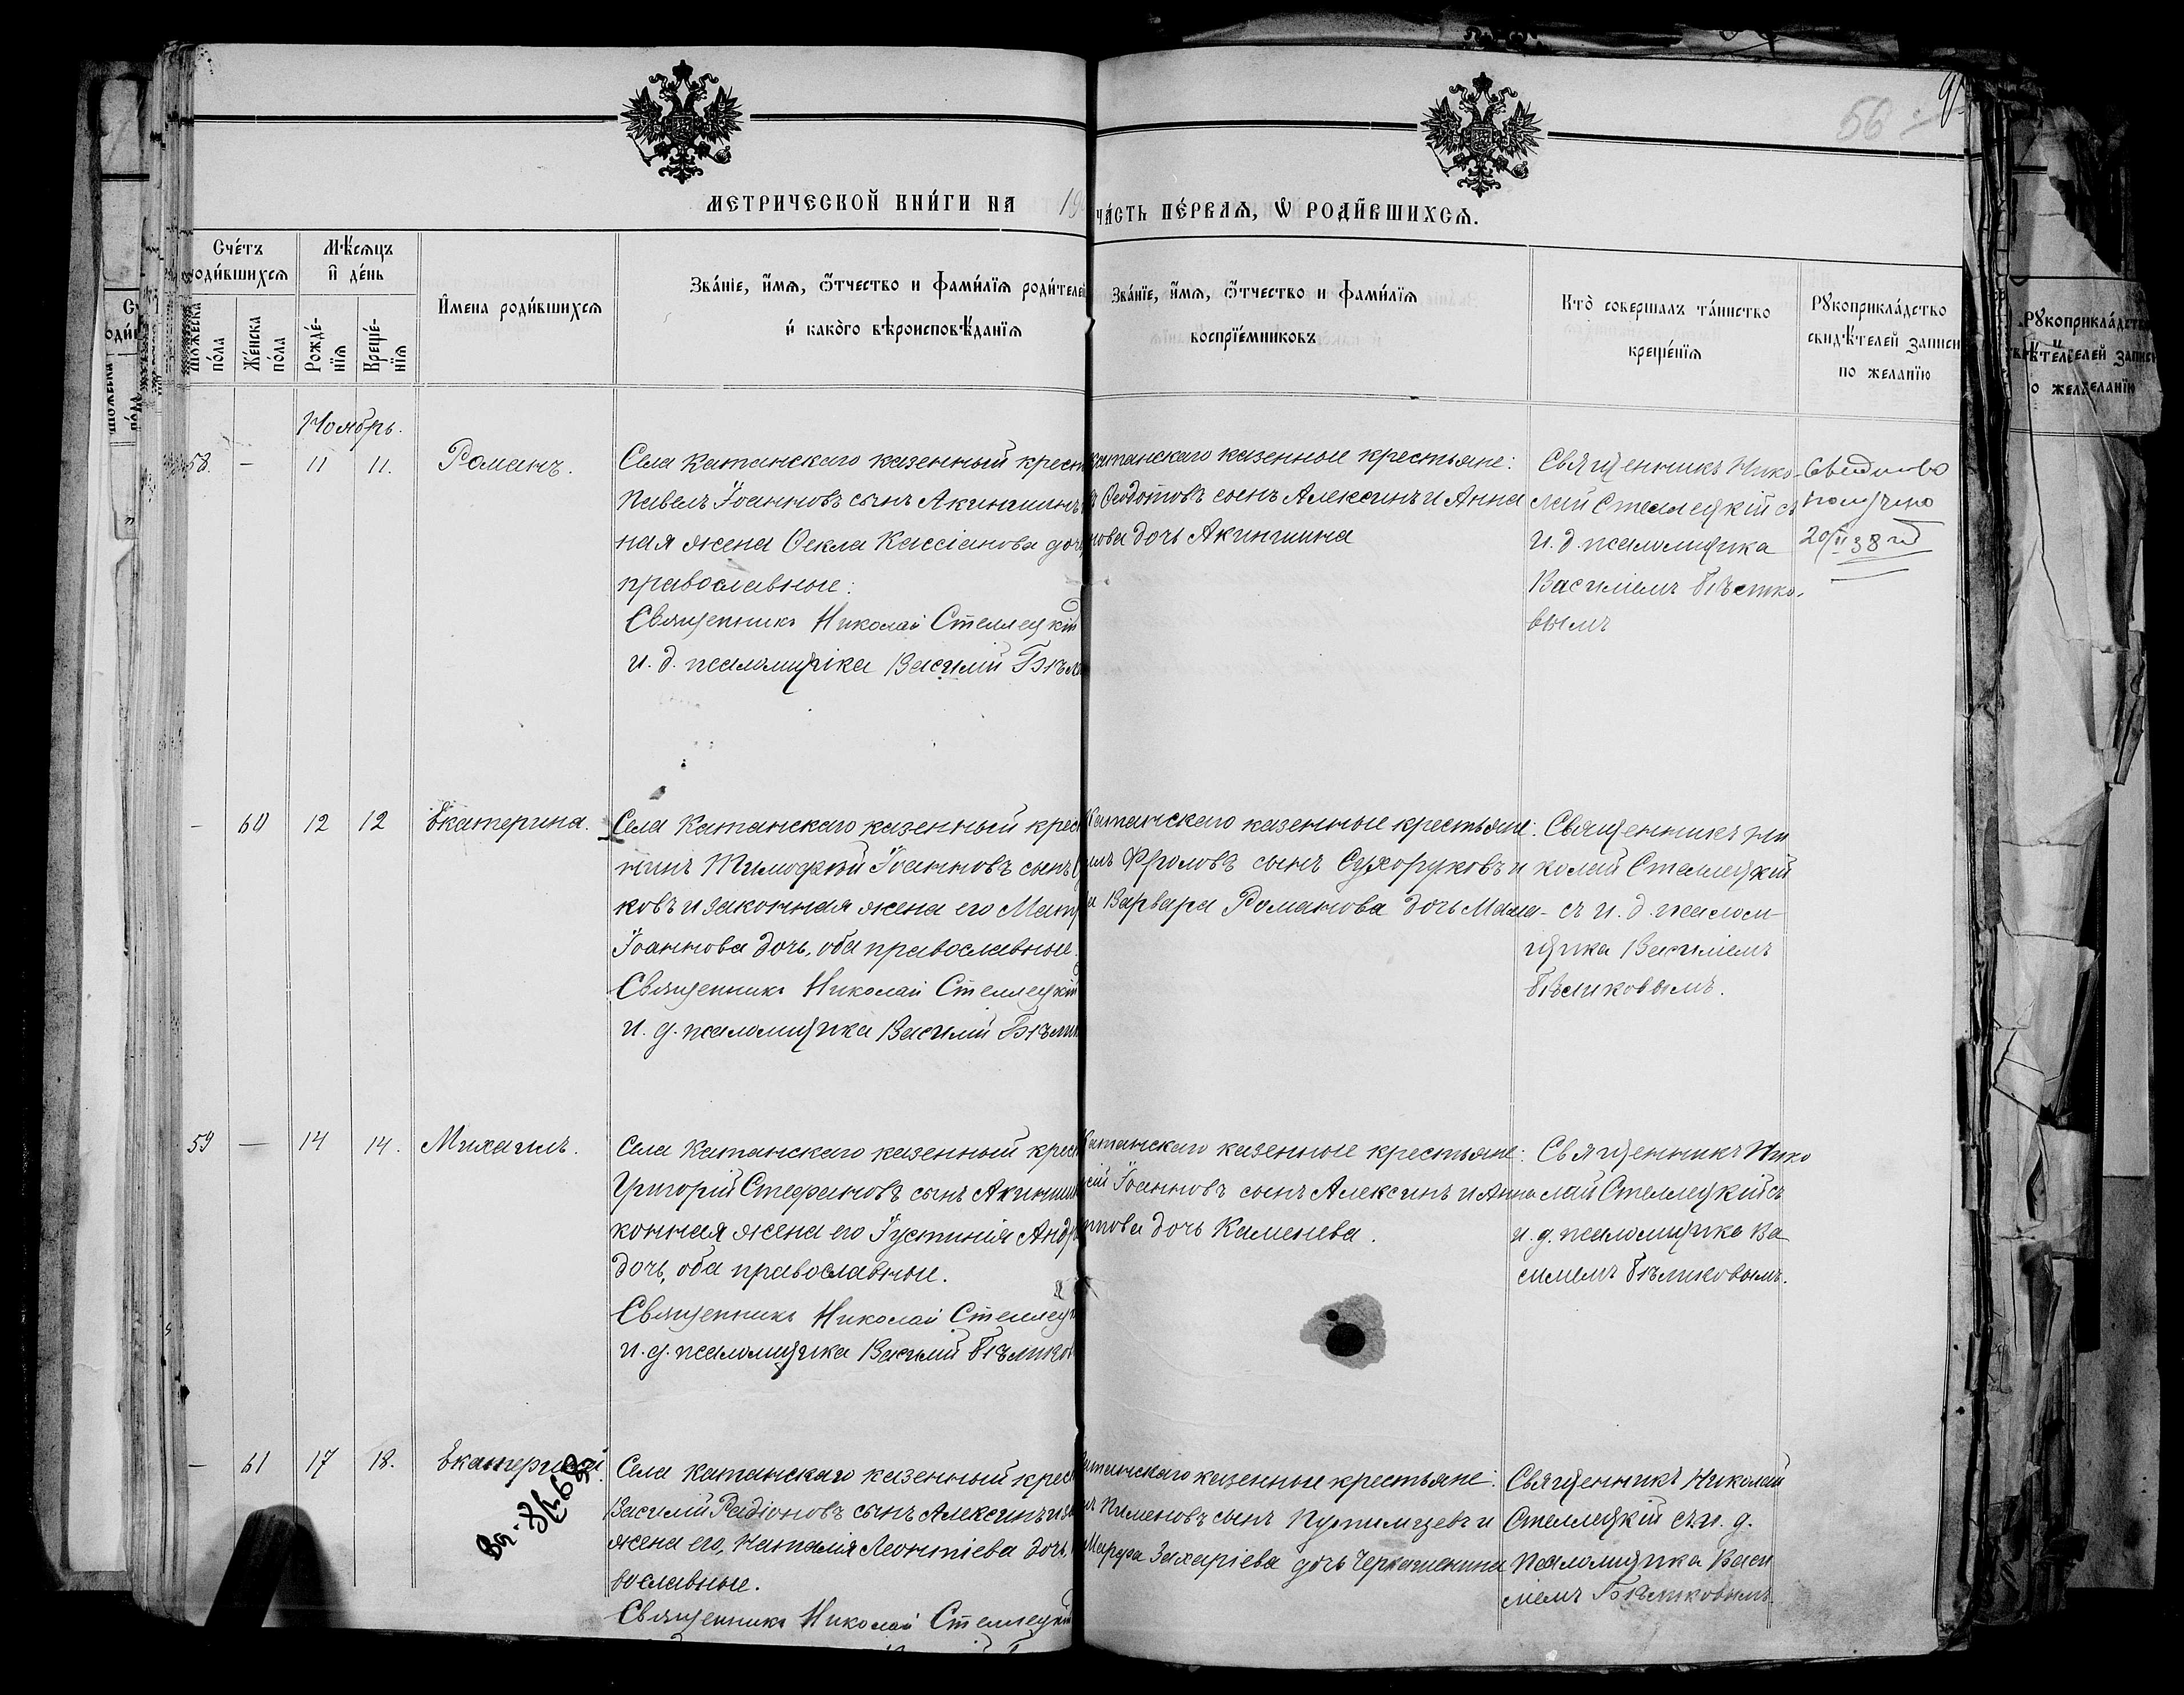 56
МЕТРИЧЕСКОЙ КНИ́ГИ НА 19
ЧА́СТЬ ПЕ́РВАѦ, Ѡ҆ РОДИ́ВШИХСѦ.
Сче́тъ
роди́вшихсѧ
Мѣ́сѧцъ
и҆ де́нь
И҆мена роди́вшихсѧ
Зва́нїе, и҆́мѧ, ѻ҆́тчество и фами́лїѧ роди́телей
и҆ како́го вѣроисповѣ́данїѧ
Зва́нїе, и҆́мѧ, ѻ҆́тчество и фами́лїѧ
воспрїе́мниковъ
Кто̀ совершалъ та́инство
креще́нїѧ
Рꙋкоприкла́дство
свидѣ́телей записи
по желанїю
Мꙋжеска
по́ла
Же́нска
по́ла
Рожде́-
нїѧ
Креще́-
нїѧ
Ноябрь.
58. — 11 11. Романъ.
Села Катанскаго казенный крест
Павелъ Іоанновъ сынъ Акиншинъ
ная жена Ѳекла Кассіанова доч
православные.
Священникъ Николай Стеллецкій
и. д. псаломщика Василій Бѣл
Катанскаго казенные крестьяне:
Ѳедотовъ сынъ Алексинъ и Анна
нова дочь Акиншина
Священникъ Нико-
лай Стеллецкій съ
и. д. псаломщика
Василіемъ Бѣлико-
вымъ
20/II 38
— 60 12 12 Екатерина.
Села Катанскаго казенный крес
нинъ Тимоѳей Іоанновъ сынъ
ковъ и законная жена его Матр
Іоаннова дочь, оба православные.
Священникъ Николай Стеллецкій
и. д. псаломщика Василій Бѣлик
Катанскаго казенные крестьяне:
Фроловъ сынъ Сухоруковъ и
Варвара Романова дочь
Священникъ Ни
колай Стеллецкій
съ и. д. псалом-
щика Василіемъ
Бѣликовымъ.
59 — 14 14. Михаилъ.
Села Катанскаго казенный крест
Григорій Стефановъ сынъ Акинши
конная жена его Іустинія Андр
дочь, оба православные.
Священникъ Николай Стеллец
и. д. псаломщика Василій Бѣликов
Катанскаго казенные крестьяне:
Іоанновъ сынъ Алексинъ и Анна
дочь Каменева.
Священникъ Нико
лай Стеллецкій съ
и. д. псаломщика Ва
силіемъ Бѣликовымъ.
— 61 17 18. Екатерина
Села Катанскаго казенный крес
Василій Радіоновъ сынъ Алексинъ и за
жена его, Наталія Леонтіева дочь,
вославные.
Священникъ Николай Стеллецкій
Катанскаго казенные крестьяне:
Пименовъ сынъ и
Марфа Захаріева дочь Черкашенина
Священникъ Николай
Стеллецкій съ и. д.
Псаломщика Васи
ліемъ Бѣликовымъ.